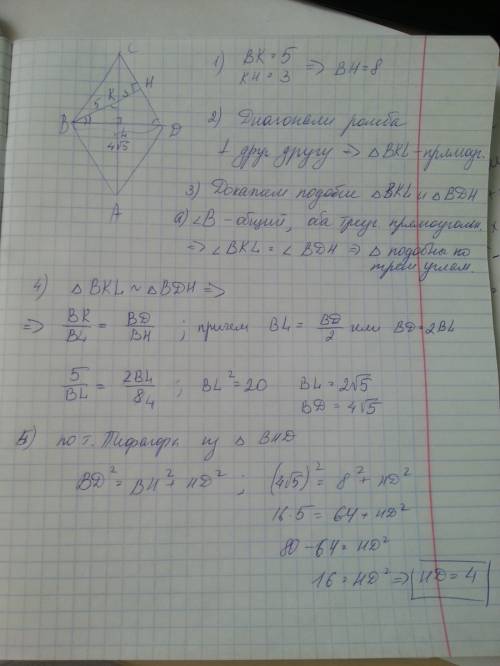 C
H
K
3
5
B
D
L
4√5
A
1) BK = 5
KH = 3 => BH = 8
2) Диагонали ромба
⊥ друг другу => △BKL - прямоуг.
3) Докажем подобие △BKL и △BDH
а) ∠B - общий, оба треуг. прямоугольн.
=> ∠BKL = ∠BDH => △ подобны по
трем углам.
4) △BKL ~ △BDH =>
=> BK/BL = BD/BH ; причем BL = BD/2 или BD = 2BL
5/BL = 2BL/8 4 ; BL² = 20 BL = 2√5
BD = 4√5
5) по т. Пифагора из △ BHD
BD² = BH² + HD² ; (4√5)² = 8² + HD²
16·5 = 64 + HD²
80 - 64 = HD²
16 = HD² => HD = 4